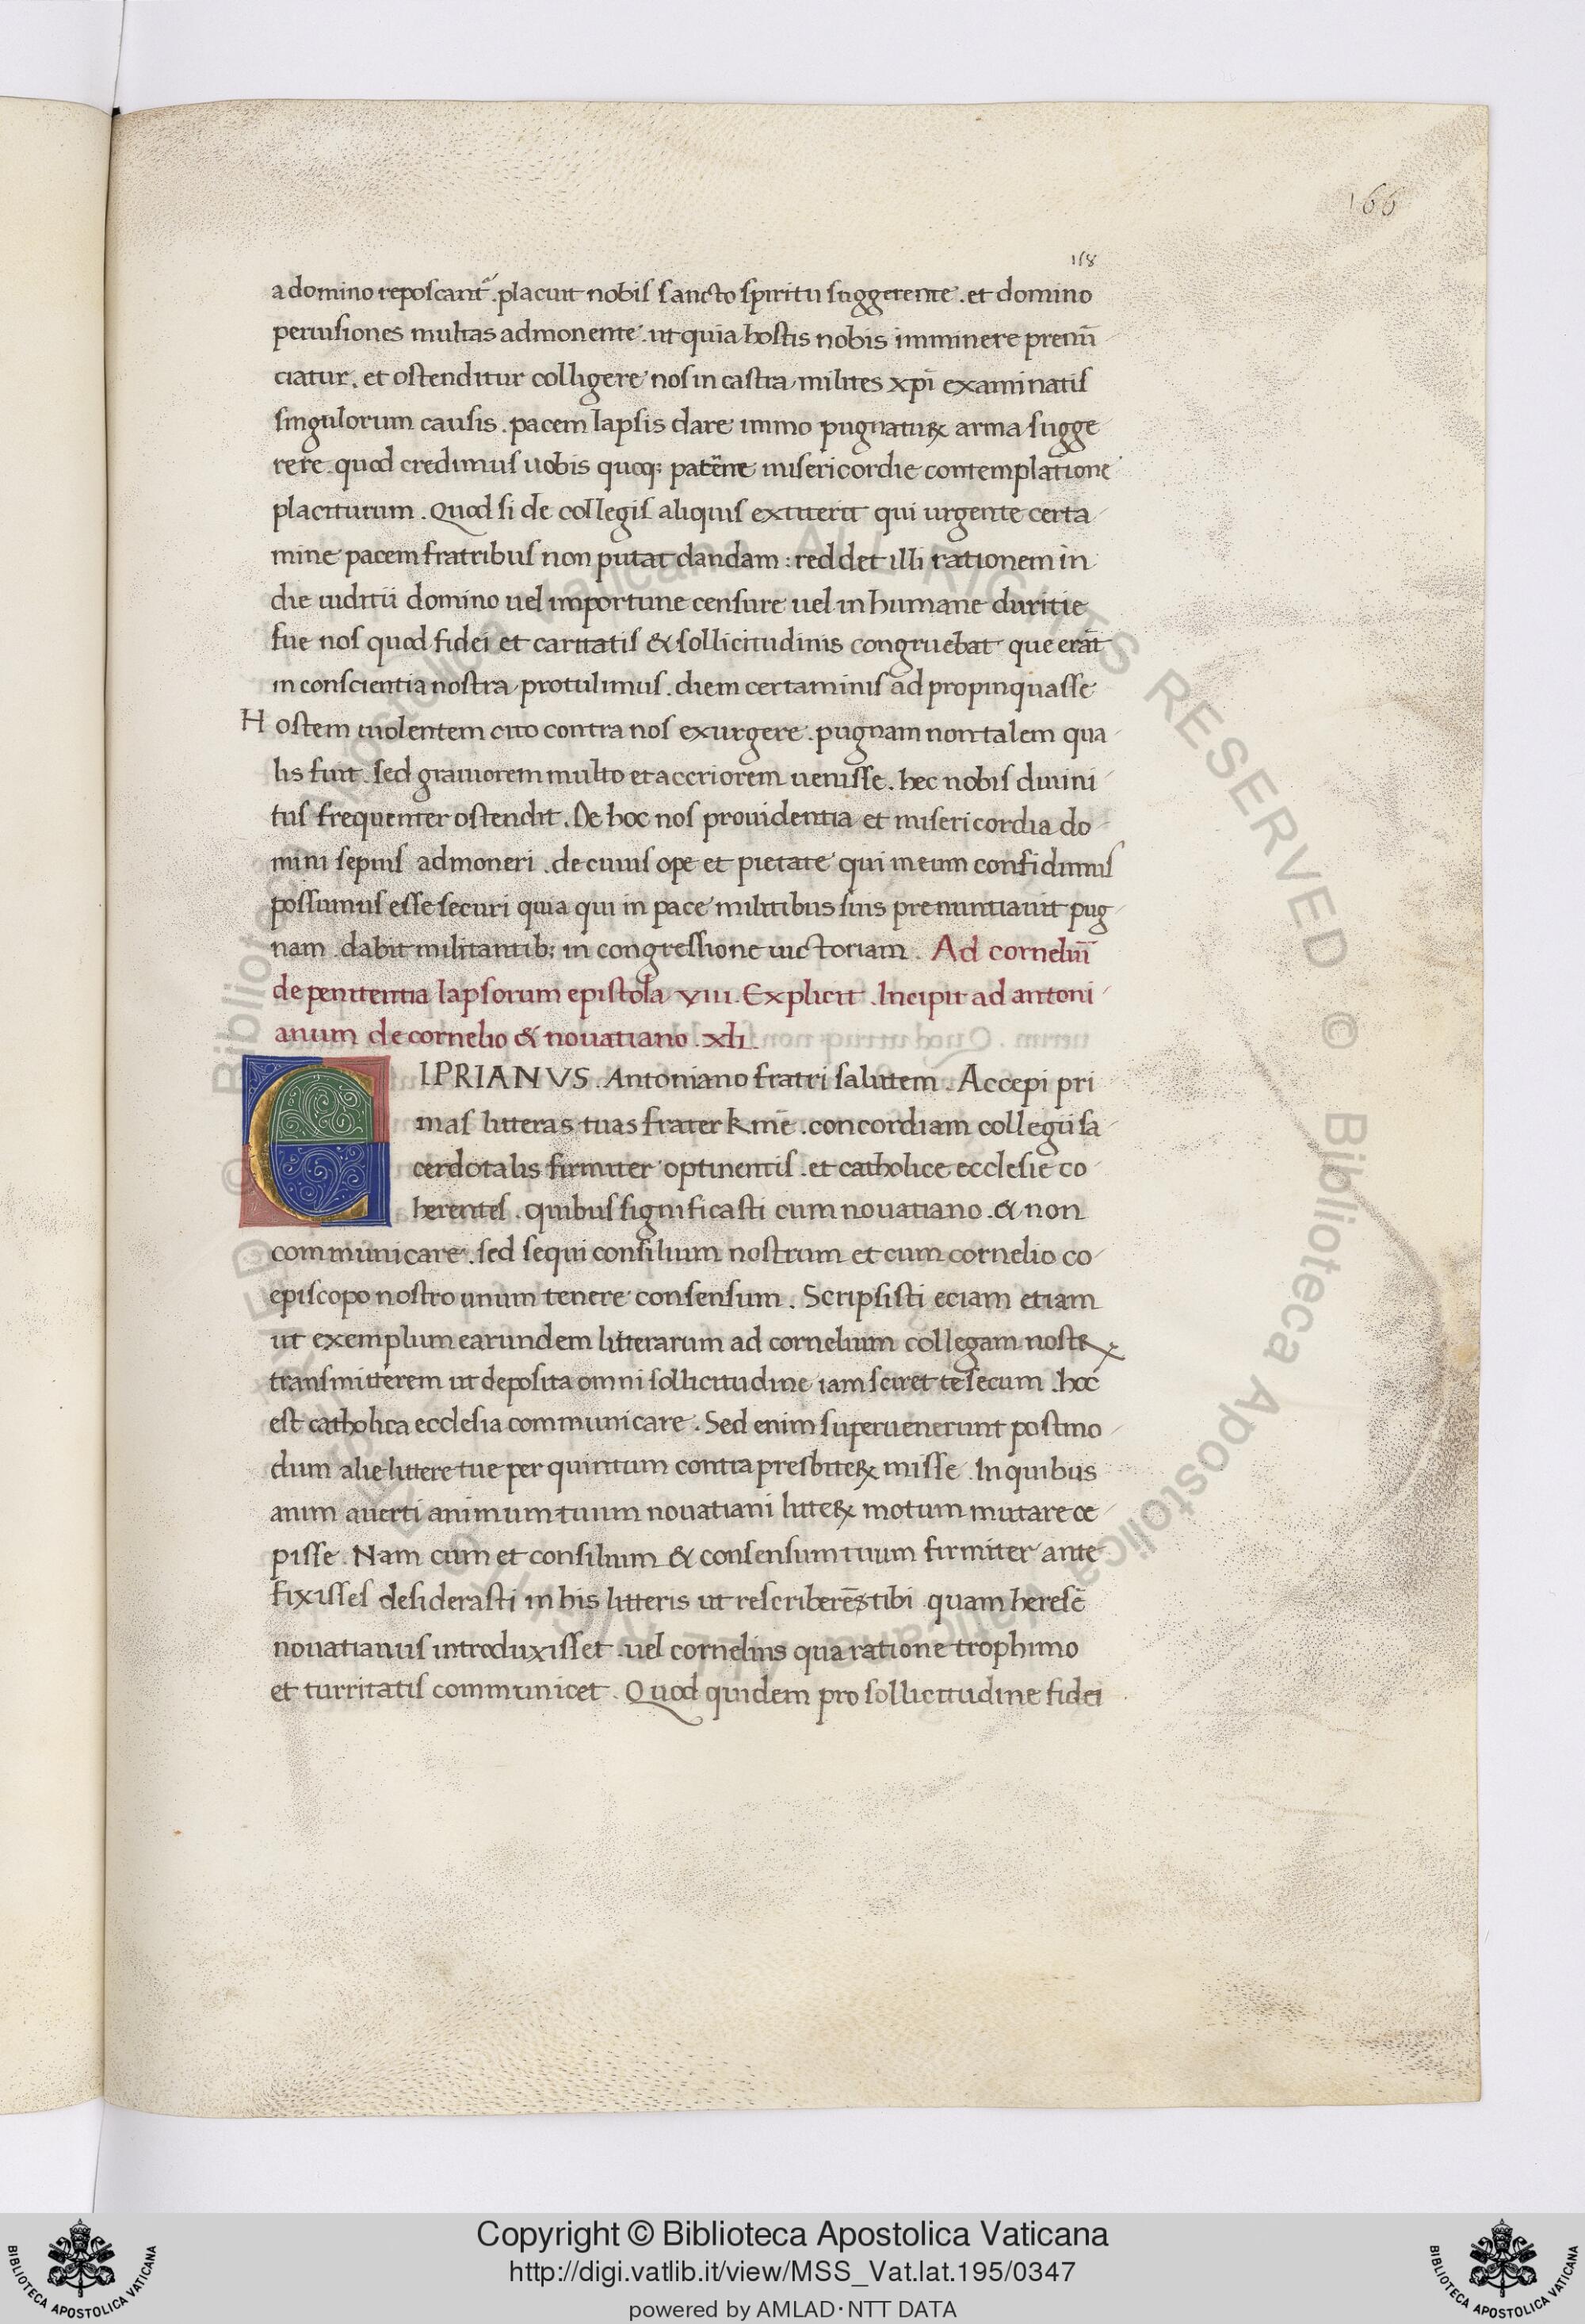 166
158
a domino reposcant᷑. placuit nobis sancto spiritu suggerente. et domino
per uisiones multas admonente. ut quia hostis nobis imminere prenū
ciatur. et ostenditur colligere nos in castra milites xp̄i examinatis
singulorum causis. pacem lapsis dare immo pugnaturꝝ arma sugge
rere. quod credimus uobis quoq; paterne misericordie contemplatione
placiturum. Quod si de collegis aliquis extiterit qui urgente certa
mine pacem fratribus non putat dandam: reddet illi rationem in
die iuditii domino uel importune censure uel inhumane duritie
sue nos quod fidei et caritatis & sollicitudinis congruebat que erāt
in conscientia nostra protulimus. diem certaminis ad propinquasse
Hostem uiolentem cito contra nos exurgere. pugnam non talem qua
lis fuit. sed grauiorem multo et accriorem uenisse. hec nobis diuini
tus frequenter ostendit. De hoc nos prouidentia et misericordia do
mini sepius admoneri. de cuius ope et pietate qui in eum confidimus
possumus esse securi quia qui in pace militibus suis prenuntiauit pug
nam. dabit militantib; in congressione uictoriam. Ad corneliū
de penitentia lapsorum epistola VIII. Explicit. Incipit ad antoni
anum de cornelio & nouatiano. xli
CIPRIANVS. Antoniano fratri salutem. Accepi pri
mas litteras tuas frater kmē. concordiam collegii sa
cerdotalis firmiter optinentis. et catholice ecclesie co
herentes. quibus significasti cum nouatiano. & non
communicare. sed sequi consilium nostrum et cum cornelio co
episcopo nostro unum tenere consensum. Scripsisti eciam etiam
ut exemplum earundem litterarum ad cornelium collegam nostꝝ
transmitterem ut deposita omni sollicitudine iam sciret te secum. hoc
est catholica ecclesia communicare. Sed enim superuenerunt postmo
dum alie littere tue per quintum contra presbiteꝝ misse. In quibus
anim auerti animum tuum nouatiani litteꝝ motum mutare ce
pisse. Nam cum et consilium & consensum tuum firmiter ante
fixisses desiderasti in his litteris ut rescriberēs tibi. quam heresē
nouatianus introduxisset. uel cornelius qua ratione trophimo
et turritatis communicet. Quod quidem pro sollicitudine fidei
Copyright © Biblioteca Apostolica Vaticana
http://digi.vatlib.it/view/MSS_Vat.lat.195/0347
powered by AMLAD·NTT DATA
BIBLIOTECA APOSTOLICA VATICANA
BIBLIOTECA APOSTOLICA VATICANA
© Biblioteca Apostolica Vaticana ALL RIGHTS RESERVED © Biblioteca Apostolica Vaticana ALL RIGHTS RESERVED